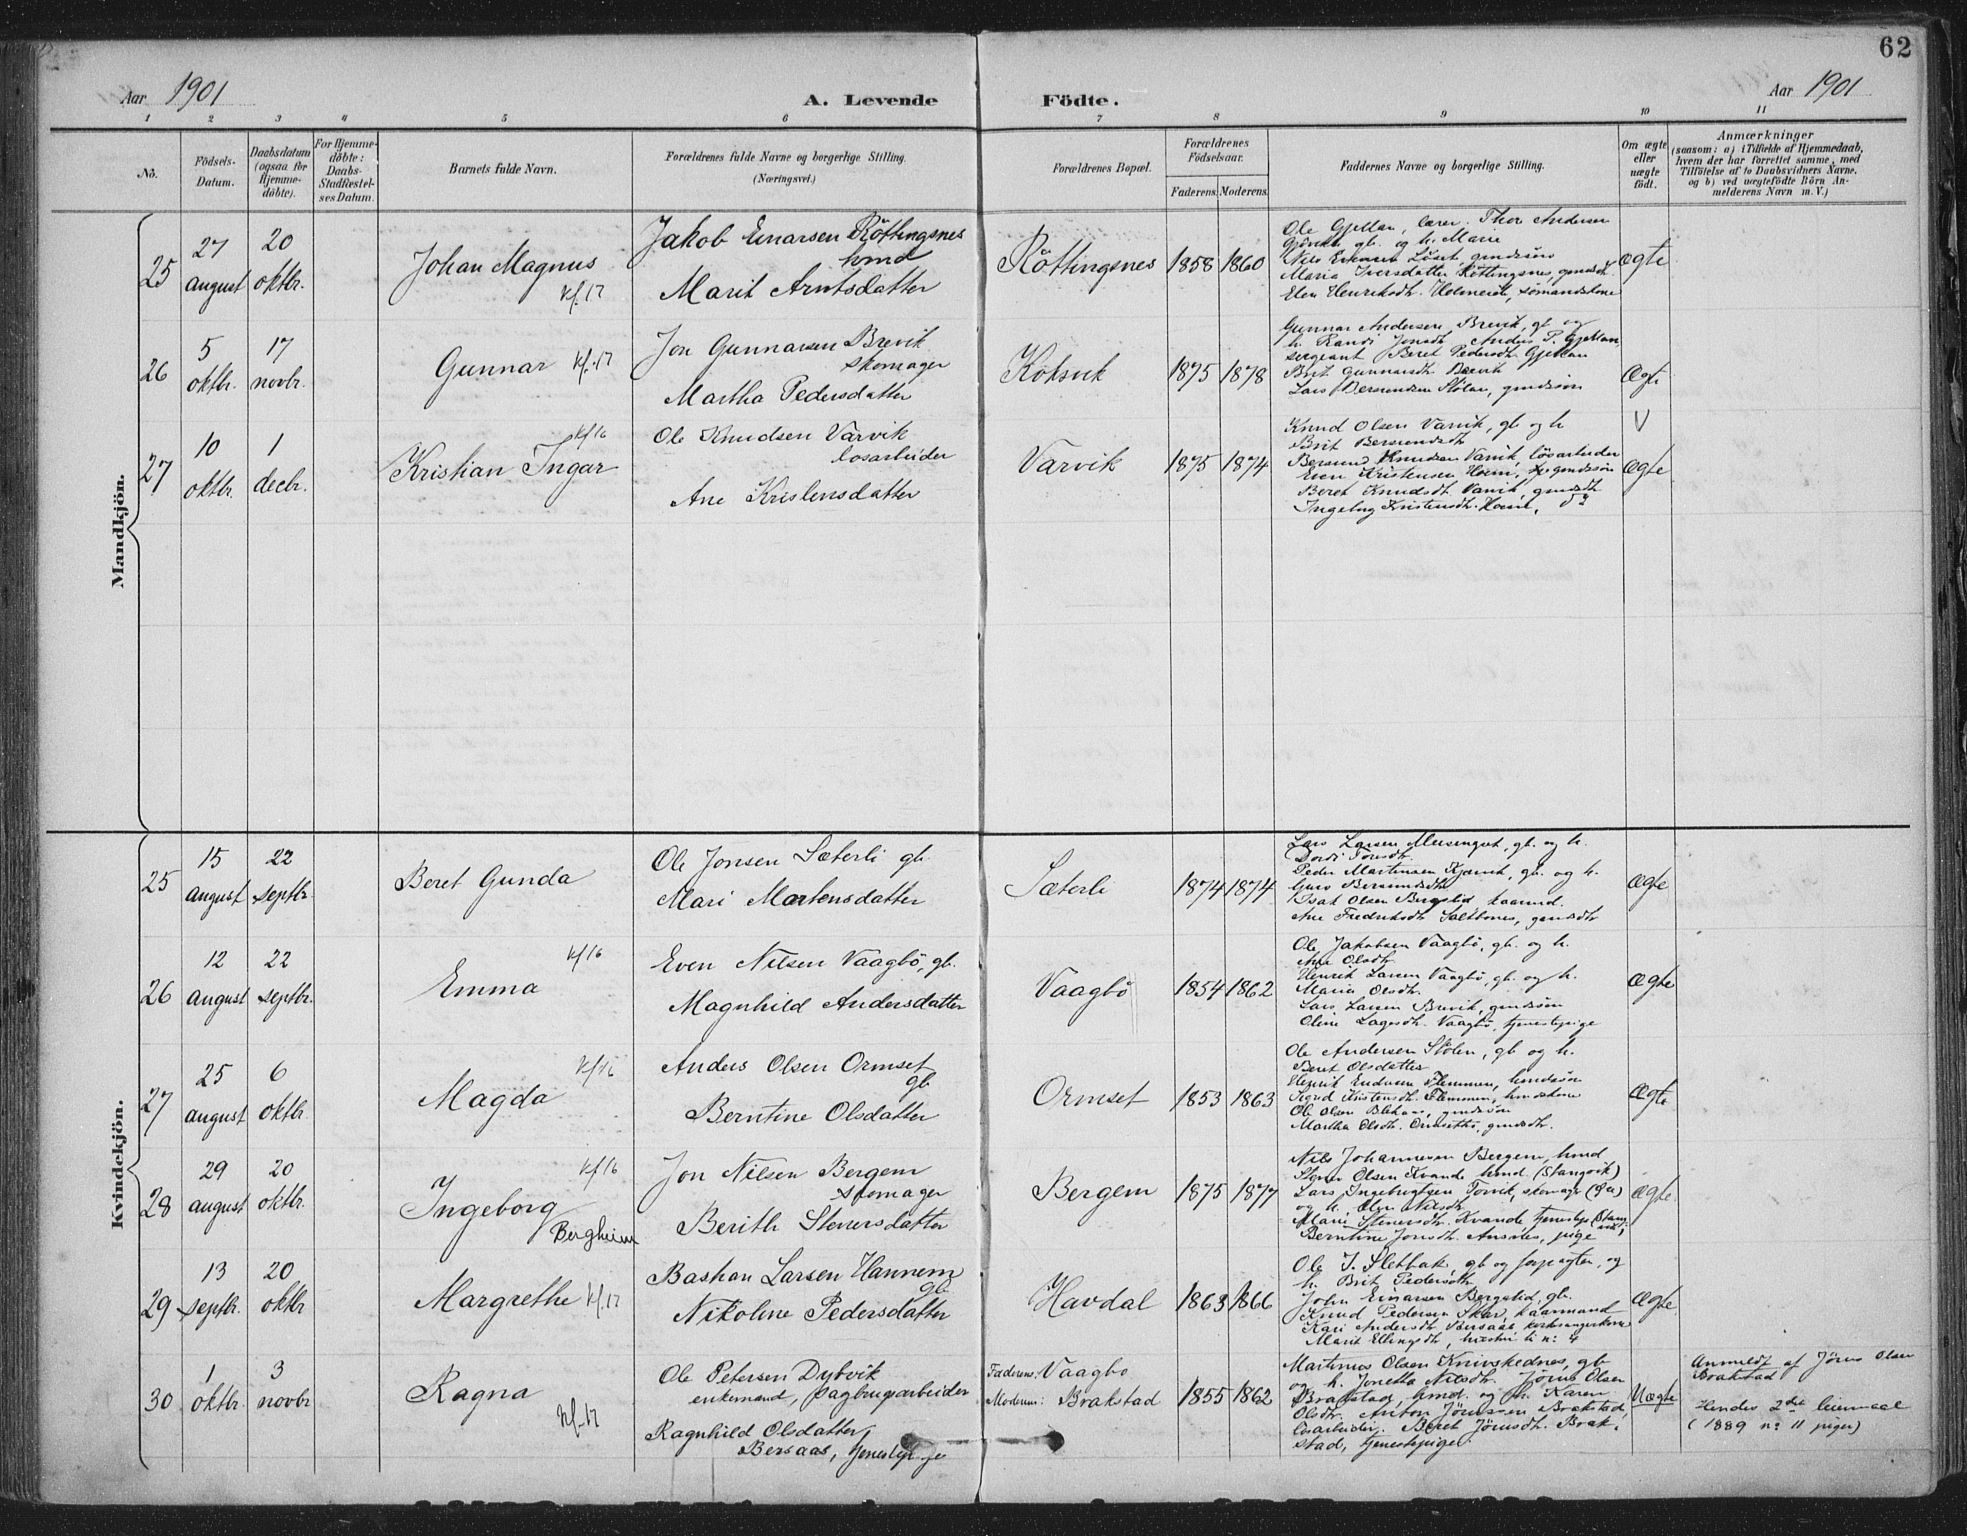 62
Aar 1901
A. Levende Födte.
Aar 1901
1 2 3 4 5 6 7 8 9 10 11
No.
Födsels-Datum.
Daabsdatum (ogsaa for Hjemme-døbte).
For Hjemme-døbte: Daabs-Stadfæstel-ses Datum.
Barnets fulde Navn.
Forældrenes fulde Navne og borgerlige Stilling.
(Næringsvei.)
Forældrenes Bopæl.
Forældrenes Födselsaar.
Faderens. Moderens.
Faddernes Navne og borgerlige Stilling.
Om ægte eller uægte født.
Anmærkninger
(saasom: a) i Tilfælde af Hjemmedaab,
hvem der har forrettet samme, med
Tilföielse af to Daabsvidners Navne.
og b) ved uægtefödte Börn An-
melderens Navn m. V.)
Mandkjön.
25
27 august
20 oktbr.
Johan Magnus
kf. 17
Jakob Einarsen Röttingsnes
hmd
Marit Arntsdatter
Röttingsnes
1858 1860
Ole Gjellan, lærer. Thor Andersen
gb. og h. Marie
Maria Iversdatter Röttingsnes, gmdsdt.
Elen Henriksdt.
ægte
26
5 oktbr.
17 novbr.
Gunnar kf. 17
Jon Gunnarsen Brevik
skomager
Martha Pedersdatter
Koksvik
1875 1878
Gunnar Andersen Brevik, gb og
h. Randi Jonsdt. Anders P. Gjellan,
sergeant Beret Pedersdt. Gjellan
Brit Gunnarsdt. Brevik
Lars Bersvendsen Stölan, gmdssön
Ægte
27
10 oktbr.
1 decbr.
kf 16
Kristian Ingar
Ole Knudsen Varvik
losarbeider
Ane Kristensdatter
Varvik
1875 1874
Knud Olsen Varvik, gb og h
Brit Bersvendsdt
Bersvend Knudsen Varvik, lösarbeider
Even Kristensen Hoem, gmdssön
Beret Knudsdt. Varvik, gmdsdt.
Ingeborg Kristensdt. Hoem, do
V
Ægte
Kvindekjön.
25
15 august
22 septbr.
Beret Gunda
Ole Jonsen Sæterli gb.
Mari Martensdatter
Sæterli
1874 1874
Lars Larsen, gb. og h.
Peder Martinsen, gb. og h.
Guro Bersvendsdt
Isak Olsen Bergslid kaarmd.
Ane Fredriksdt. Saltbones, gmdsdt
Ægte
26
12 august
22 septbr.
kf 16
Emma
Even Nilsen Vaagbö, gb.
Magnhild Andersdatter
Vaagbö
1854 1862
Ole Jakobsen Vaagbö, gb. og h.
Ane Olsdt.
Henrik Larsen Vaagbö, gb. og h.
Maria Olsdt.
Lars Larsen Brevik, gmdssön
Oline Larsdt. Vaagbö, tjenestepige
Ægte
27
25 august
6 oktbr.
kf 16
Magda
Anders Olsen Ormset
gb
Berntine Olsdatter
Ormset
1853 1863
Ole Andersen Stölen, gb og h.
Beret Olsdatter
Henrik Flemmen, hmdssön
Sigrid Kristensdt. Flemmen, hmdskone
Ole Olsen, gmdssön
Martha Olsdt. Ormset, gmdsdt.
Ægte
28
29 august
20 oktbr.
kf 16
Ingeborg
Bergheim
Jon Nilsen Bergem
skomager
Berith Stenersdatter
Bergem
1875 1877
Nils Johannesen Bergem, hmd
Stener Olsen Kvande hmd (Stangvik)
Lars Ingebrigtsen Torvik, skomager
og h. Nilsdt.
Mari Stenersdt. Kvande, tjenestep
Berntine Jonsdt., pige
Ægte
29
13 septbr.
20 oktbr
Margrethe kf. 17
Bastian Larsen Hannem
gb.
Nikoline Pedersdatter
Havdal
1863 1866
Ole J. Sletbak, gb og, og
h. Brit Pedersdt
John Einarsen Bergslid, gb.
Knud Pedersen Skar, kaarmand
Kari Andersdt. Bersaas, kirkesangerkone
Marit Ellingsdt., hustru til no: 4
Ægte
30
1 oktbr.
3 novbr
Ragna
kf. 17
Ole Petersen Dybvik
enkemand, sagbrugsarbeider
Ragnhild Olsdatter
Bersaas, tjenestepige
Faderens: Vaagbo
Moderens: Brakstad
1855 1862
Martinus Olsen Knivskednes, gb
og h. Jonetta Nilsdt. Jörns Olsen
Brakstad, hmd. og h. Karen
Olsdt. Anton Jörnssen Brakstad,
losarbeider. Beret Jörnsdt. Brak-
stad, tjenestepige.
Uægte
Anmeldt af Jörns Olsen
Brakstad
Hendes 2det leiermaal
(1889 no 11 piger)